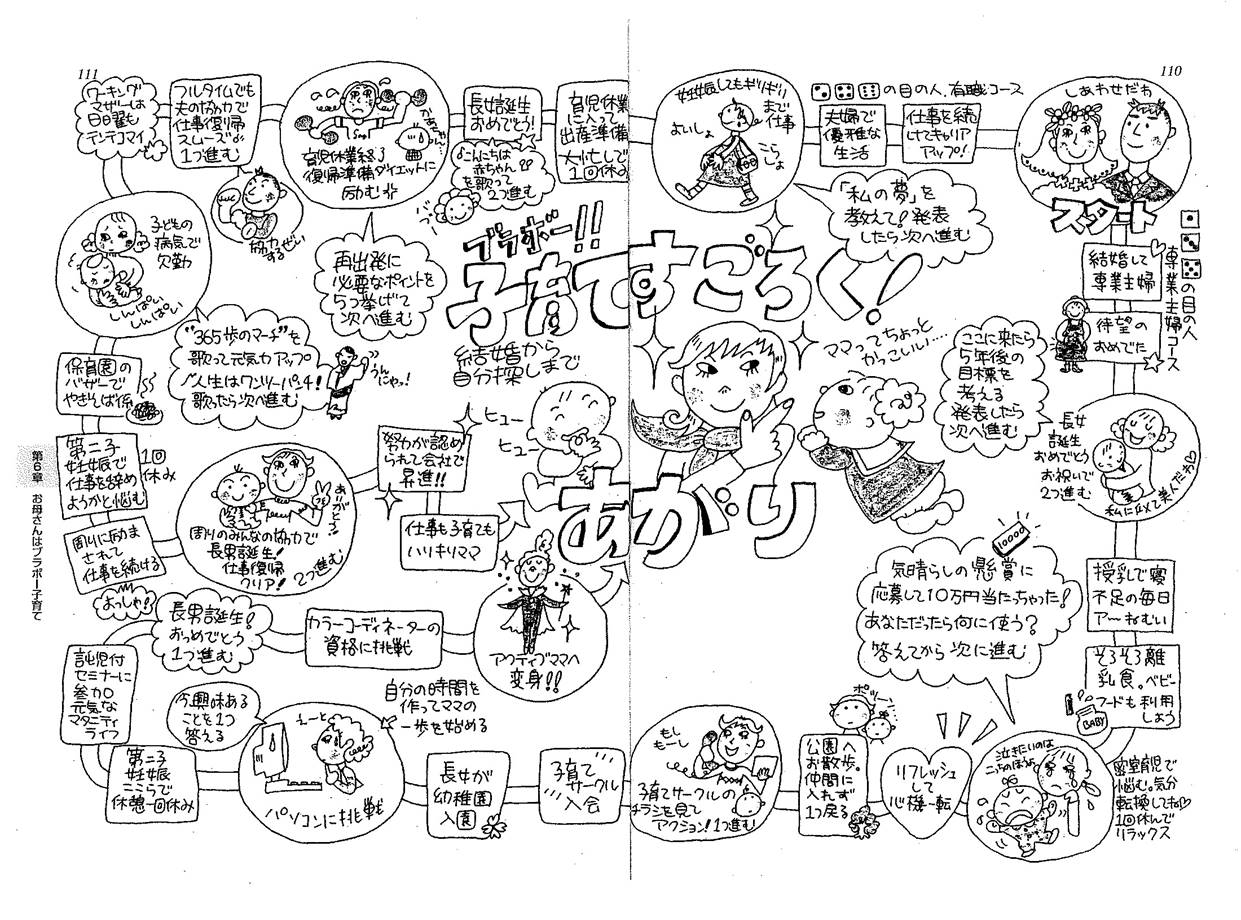 111
110
ブラボー!!
子育てすごろく!
結婚から
自分探しまで
しあわせだわ
スタート
⚁⚃⚅の目の人、有職コース
仕事を続
けてキャリア
アップ!
夫婦で
優雅な
生活
妊娠してもギリギリ
まで
仕事
よいしょ
こらしょ
「私の夢」を
教えて!発表
したら次へ進む
育児休業
に入って
出産準備
大忙しで
1回休み
長女誕生
おめでとう!
♪こんにちは
赤ちゃん♪
を歌って
2つ進む
育児休業終了
復帰準備ダイエットに
励む
再出発に
必要なポイントを
5つ挙げて
次へ進む
フルタイムでも
夫の協力で
仕事復帰
スムーズ
1つ進む
協力
するぜい
ワーキング
マザーは
日曜も
テンテコマイ
子どもの
病気で
欠勤
しんぱい
しんぱい
"365歩のマーチ"を
歌って元気力アップ
♪人生はワンツーパンチ!
歌ったら次へ進む
うん
にゃっ!
保育園の
バザーで
やきそば係
第二子
妊娠で
仕事を辞め
ようかと悩む
1回
休み
周りに励ま
されて
仕事を続ける
おっしゃ!
周りのみんなの協力で
長男誕生!
仕事復帰
クリア!
2つ進む
ありがとう!
努力が認め
られて会社で
昇進!!
仕事も子育ても
ハリキリママ
⚀⚂⚄の目の人
専業主婦コース
結婚して
専業主婦
待望の
おめでた
長女
誕生
おめでとう
お祝いで
2つ進む
私に似て美人だわ♡
ここに来たら
5年後の
目標を
考える
発表したら
次へ進む
授乳で寝
不足の毎日
ア〜ねむい
そろそろ離
乳食。ベビー
フードも利用
しよう
BABY
泣きたいのは
こっちのほうよ
密室育児で
悩む。気分
転換してね♡
1回休んで
リラックス
10000
気晴らしの懸賞に
応募して10万円当たっちゃった!
あなただったら何に使う?
答えてから次に進む
リフレッシュ
して
心機一転
ポツーン
公園へ
お散歩。
仲間に
入れず
1つ戻る
もし
もーし
子育てサークルの
チラシを見て
アクション!1つ進む
子育て
サークル
入会
長女が
幼稚園
入園
自分の時間を
作ってママの
一歩を始める
パソコンに挑戦
今興味ある
ことを1つ
答える
第二子
妊娠
ここらで
休憩一回休み
託児付
セミナーに
参加○
元気な
マタニティ
ライフ
長男誕生!
おっめでとう
1つ進む
カラーコーディネーターの
資格に挑戦
アクティブママへ
変身!!
ヒュー
ヒュー
ママってちょっと
かっこいい・・・
あがり
第6章 お母さんはブラボー子育て